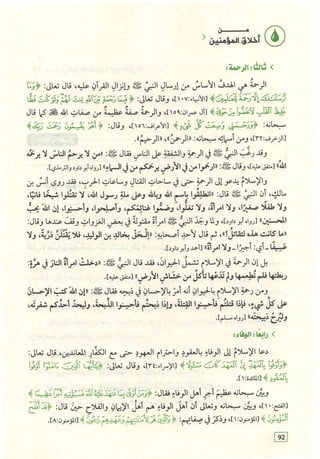 من
أخلاق المؤمنين
ثالثًا: الرحمة:
الرحمة هي الهدف الأساس من إرسال النبي ﷺ وإنزال القرآن عليه، قال تعالى: ﴿وَمَا
أَرْسَلْنَاكَ إِلَّا رَحْمَةً لِّلْعَالَمِينَ﴾ [الأنبياء: ١٠٧]، وقال تعالى: ﴿فَبِمَا رَحْمَةٍ مِّنَ اللَّهِ لِنتَ لَهُمْ وَلَوْ كُنتَ فَظًّا
غَلِيظَ الْقَلْبِ لَانفَضُّوا مِنْ حَوْلِكَ﴾ [آل عمران: ١٥٩]، والرحمة صفة عظيمة من صفات الله ﷻ كما قال
سبحانه: ﴿وَرَحْمَتِي وَسِعَتْ كُلَّ شَيْءٍ﴾ [الأعراف: ١٥٦]، وقال: ﴿أَهُمْ يَقْسِمُونَ رَحْمَتَ رَبِّكَ﴾
[الزخرف: ٣٢]، ومن أسمائه سبحانه: «الرحمن»، «الرحيم».
وقد رغّب النبي ﷺ في الرحمة والشفقة على الناس فقال ﷺ: «من لا يرحم الناس لا يرحمه
الله» [متفق عليه]، وقال ﷺ: «ارحموا من في الأرض يرحمكم من في السماء» [رواه أبو داود والترمذي].
والإسلام يدعو إلى الرحمة حتى في ساحات القتال وساحات الحرب، فقد روى أنس بن
مالك، أن النبي ﷺ قال: «انطلقوا باسم الله وبالله وعلى ملة رسول الله، لا تقتلوا شيخًا فانيًا،
ولا طفلًا صغيرًا، ولا امرأة، ولا تغلّوا، وضمّوا غنائمكم، وأصلحوا، وأحسنوا، إن الله يحب
المحسنين» [رواه أبو داود]، ولما وجد النبي ﷺ امرأة مقتولة في بعض الغزوات وقف عندها وقال:
«ما كانت هذه لتقاتل!»، ثم قال لأحد أصحابه: «إلحق بخالد بن الوليد، فلا يقتلنّ ذرية، ولا
عسيفًا – أي: أجيرًا – ولا امرأة» [أحمد وأبو داود].
بل إن الرحمة في الإسلام تشمل الحيوان، فقد قال النبي ﷺ: «دخلت امرأة النار في هرّة:
ربطتها فلم تطعمها ولم تدعها تأكل من خشاش الأرض» [متفق عليه].
ومن رحمة الإسلام بالحيوان أنه أمر بالإحسان في ذبحه فقال ﷺ: «إن الله كتب الإحسان
على كل شيء، فإذا قتلتم فأحسنوا القتلة، وإذا ذبحتم فأحسنوا الذبحة، وليحد أحدكم شفرته،
وليُرح ذبيحته» [رواه مسلم].
رابعًا: الوفاء:
دعا الإسلام إلى الوفاء بالعقود واحترام العهود حتى مع الكفار المعاندين، قال تعالى:
﴿وَأَوْفُوا بِالْعَهْدِ إِنَّ الْعَهْدَ كَانَ مَسْئُولًا﴾ [الإسراء: ٣٤]، وقال تعالى: ﴿يَا أَيُّهَا الَّذِينَ آمَنُوا أَوْفُوا
بِالْعُقُودِ﴾ [المائدة: ١].
وبيّن سبحانه عظيم أجر أهل الوفاء فقال: ﴿وَمَنْ أَوْفَى بِمَا عَاهَدَ عَلَيْهُ اللَّهَ فَسَيُؤْتِيهِ أَجْرًا عَظِيمًا﴾
[الفتح: ١٠]، وبيّن سبحانه وتعالى أن أهل الوفاء هم أهل الإيمان والفلاح حين قال: ﴿قَدْ أَفْلَحَ
الْمُؤْمِنُونَ﴾ [المؤمنون: ١]، وذكر في صفاتهم: ﴿وَالَّذِينَ هُمْ لِأَمَانَاتِهِمْ وَعَهْدِهِمْ رَاعُونَ﴾ [المؤمنون: ٨].
92